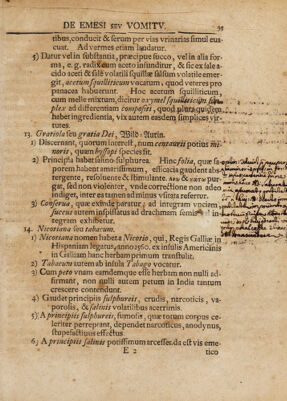 DE EMESI SEU VOMITU. 35
tibus, conducit & serum per vias urinarias simul eva-
cuat. Ad vermes etiam laudatur.
5) Datur vel in substantia, præcipue succo, vel in alia for-
ma, e. g. radix cum aceto infunditur, & sic ex sale a-
cido aceti & sale volatili squillæ fulsum volatile emer-
git, acetum squilliticum vocatum, quod veteres pro
panacea habuerunt. Hoc acetum squilliticum,
cum melle mixtum, dicitur oxymel squilliticum sim-
plex ad differentiam compositi, quod plura quidem
habet ingredientia, vix autem easdem simplices vir-
tutes.
13. Gratiola seu gratia Dei, Wild-Aurin.
1) Discernant, quorum interest, num centaurii potius mi-
noris, quam hyssopi species sit.
2) Principia habet salino-sulphurea. Hinc folia, quæ sa-
porem habent amarissimum, efficacia gaudent abs-
tergente, resolvente & stimulante. ανω & κατω pur-
gat, sed non violenter, unde correctione non adeo
indiget, inter ea tamen ad minus visata refertur.
3) Conserva, quæ exinde paratur, ad integram unciam
succus autem inspissatus ad drachmam semis, in-
tegram exhibetur.
14. Nicotiana seu tabacum.
1) Nicotiana nomen habet a Nicotio, qui, Regis Galliæ in
Hispanniam legatus, anno 1560. ex insulis Americanis
in Galliam hanc herbam primum transtulit.
2) Tabacum autem ab insula Tabago vocatur.
3) Cum peto unam eamdemque esse herbam non nulli ad-
firmant, non nulli autem petum in India tantum
crescere contendunt.
4) Gaudet principiis sulphureis, crudis, narcoticis, va-
porosis, & salinis volatilibus acerrimis.
5) A principiis sulphureis, fumosis, quæ totum corpus ce-
leriter perreptant, dependet narcoticus, anodynus,
stupefactivus effectus.
6) A principiis salinis potissimum arcesseda est vis eme-
E 2 tico